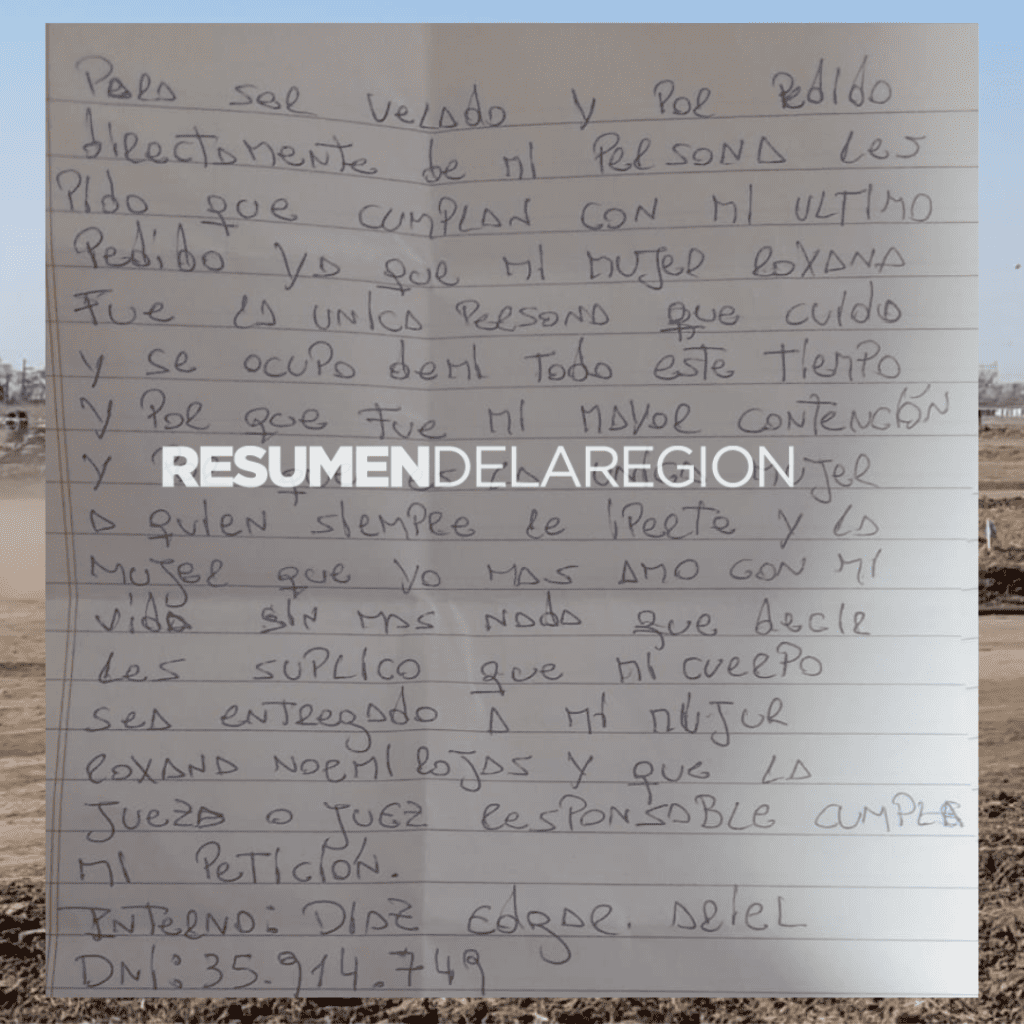 Para ser velado y por pedido
directamente de mi persona les
pido que cumplan con mi ultimo
pedido ya que mi mujer roxana
fue la unica persona que cuido
y se ocupo demi todo este tiempo
y por que fue mi mayor contención
RESUMENDELAREGION
y mujer
a quien siempre le iperte y la
mujer que yo mas amo con mi
vida sin mas nada que decir
les suplico que mi cuerpo
sea entregado a mi mujur
roxana noemi rojas y que la
jueza o juez responsable cumpla
mi petición.
Interno: Diaz Edgar. Ariel
DNi: 35.914.749